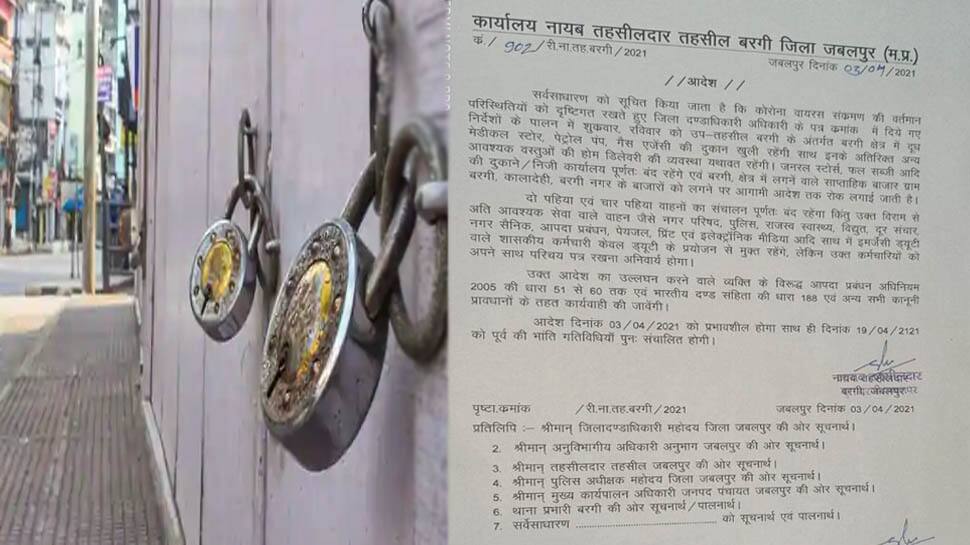 कार्यालय नायब तहसीलदार तहसील बरगी जिला जबलपुर (म.प्र.)
कं./ 902/री.ना.तह.बरगी/2021
जबलपुर दिनांक 03/04/2021
//आदेश//
सर्वसाधारण को सूचित किया जाता है कि कोरोना वायरस संकमण की वर्तमान
परिस्थितियों को दृष्टिगत रखते हुए जिला दण्डाधिकारी अधिकारी के पत्र कमांक में दिये गए
निर्देशों के पालन में शुकवार, रविवार को उप–तहसील बरगी के अंतर्गत बरगी क्षेत्र में दूध
मेडीकल स्टोर, पेट्रोल पंप, गैस एजेंसी की दुकान खुली रहेंगी साथ इनके अतिरिक्त अन्य
आवश्यक वस्तुओं की होम डिलेवरी की व्यवस्था यथावत रहेंगी। जनरल स्टोर्स, फल सब्जी आदि
की दुकाने/निजी कार्यालय पूर्णतः बंद रहेंगे एवं बरगी, क्षेत्र में लगनें वाले साप्ताहिक बाजार ग्राम
बरगी, कालादेही, बरगी नगर के बाजारों को लगने पर आगामी आदेश तक रोक लगाई जाती है।
दो पहिया एवं चार पहिया वाहनों का संचालन पूर्णतः बंद रहेगा किंतु उक्त विराम से
अति आवश्यक सेवा वाले वाहन जैसे नगर परिषद, पुलिस, राजस्व स्वास्थ्य, विद्युत, दूर संचार,
नगर सैनिक, आपदा प्रबंधन, पेयजल, प्रिंट एवं इलेक्ट्रॉनिक मीडिया आदि साथ में इमर्जेंसी ड्यूटी
वाले शासकीय कर्मचारी केवल ड्यूटी के प्रयोजन से मुक्त रहेंगे, लेकिन उक्त कर्मचारियों को
अपने साथ परिचय पत्र रखना अनिवार्य होगा।
उक्त आदेश का उल्लघंन करने वाले व्यक्ति के विरूद्ध आपदा प्रबंधन अधिनियम
2005 की धारा 51 से 60 तक एवं भारतीय दण्ड संहिता की धारा 188 एवं अन्य सभी कानूनी
प्रावधानों के तहत कार्यवाही की जावेंगी।
आदेश दिनांक 03/04/2021 को प्रभावशील होगा साथ ही दिनांक 19/04/2121
को पूर्व की भांति गतिविधियों पुनः संचालित होगी।
नायब तहसीलदार
बरगी, जबलपुर
पृष्टा.कमांक /री.ना.तह.बरगी/2021 जबलपुर दिनांक 03/04/2021
प्रतिलिपि :– श्रीमान् जिलादण्डाधिकारी महोदय जिला जबलपुर की ओर सूचनार्थ।
2. श्रीमान् अनुविभागीय अधिकारी अनुभाग जबलपुर की ओर सूचनार्थ।
3. श्रीमान् तहसीलदार तहसील जबलपुर की ओर सूचनार्थ।
4. श्रीमान् पुलिस अधीक्षक महोदय जिला जबलपुर की ओर सूचनार्थ।
5. श्रीमान् मुख्य कार्यपालन अधिकारी जनपद पंचायत जबलपुर की ओर सूचनार्थ।
6. थाना प्रभारी बरगी की ओर सूचनार्थ/पालनार्थ।
7. सर्वसाधारण ........................................ को सूचनार्थ एवं पालनार्थ।